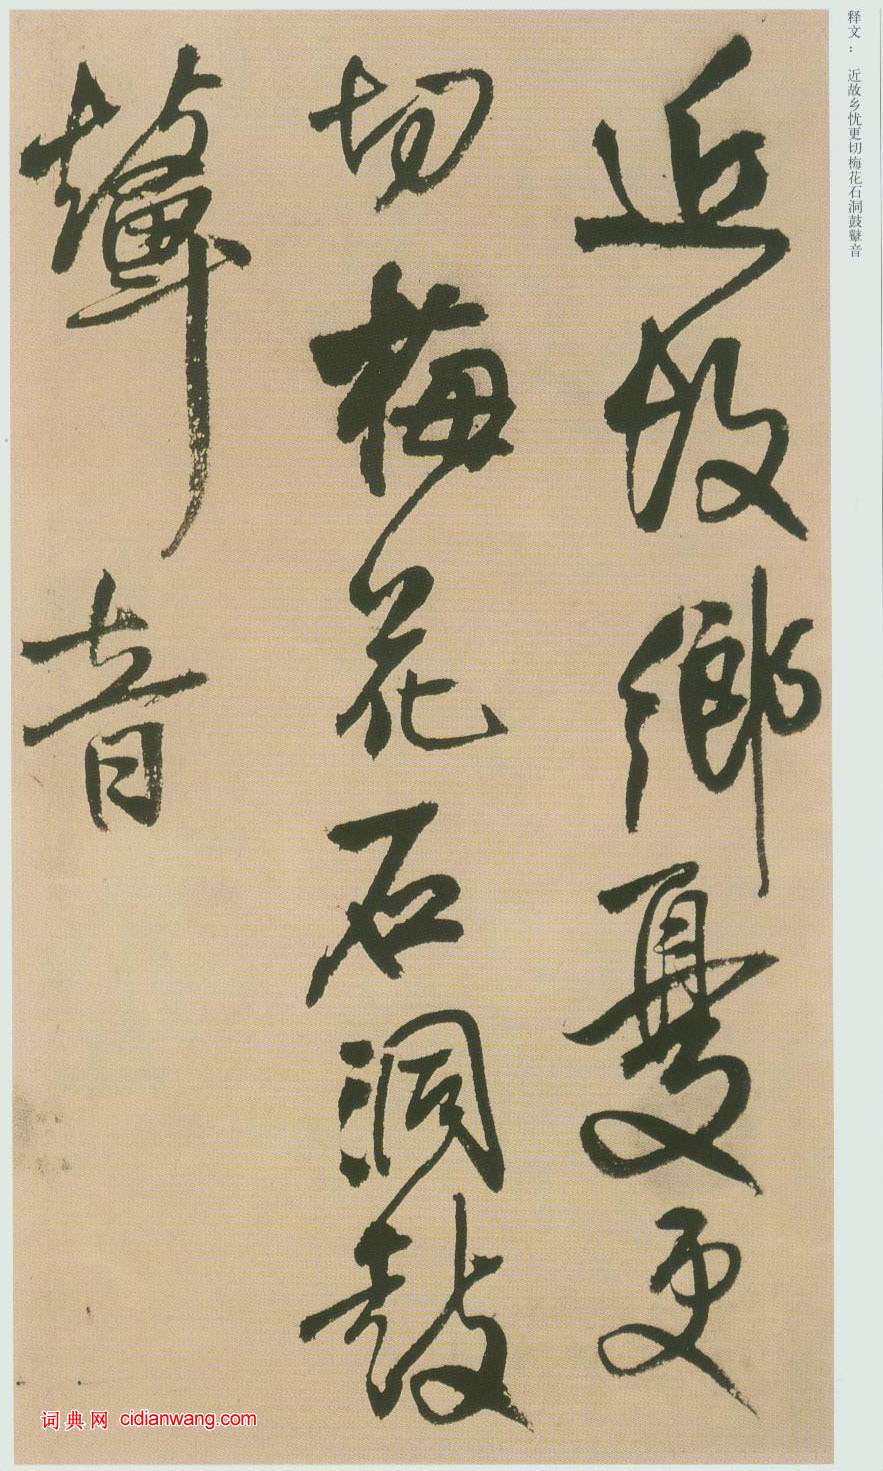 释文： 近故乡忧更切梅花石洞鼓鼙音
近故鄉憂更
切梅花石洞鼓
鼙音
词典网 cidianwang.com